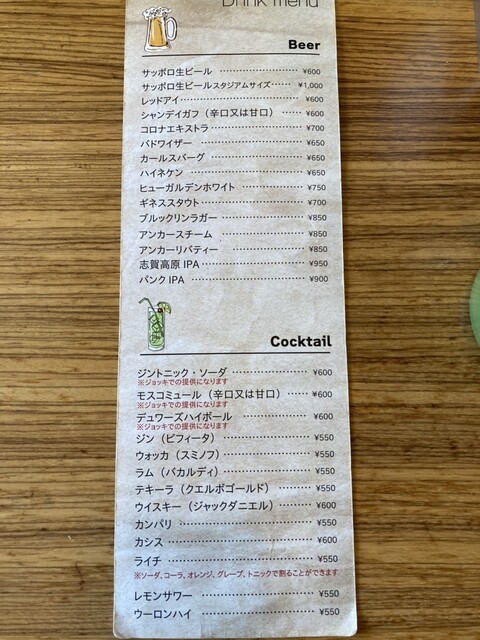 Drink menu
Beer
サッポロ生ビール ………………… ¥600
サッポロ生ビールスタジアムサイズ…… ¥1,000
レッドアイ………………………… ¥600
シャンデイガフ（辛口又は甘口） …… ¥600
コロナエキストラ………………… ¥700
バドワイザー ……………………… ¥650
カールスバーグ …………………… ¥650
ハイネケン ………………………… ¥650
ヒューガルデンホワイト ………… ¥750
ギネススタウト…………………… ¥700
ブルックリンラガー ……………… ¥850
アンカースチーム ………………… ¥850
アンカーリバティー ……………… ¥850
志賀高原 IPA……………………… ¥950
パンク IPA ………………………… ¥900
Cocktail
ジントニック・ソーダ …………… ¥600
※ジョッキでの提供になります
モスコミュール（辛口又は甘口） …… ¥600
※ジョッキでの提供になります
デュワーズハイボール …………… ¥600
※ジョッキでの提供になります
ジン（ビフィータ） ……………… ¥550
ウォッカ（スミノフ）…………… ¥550
ラム（バカルディ）……………… ¥550
テキーラ（クエルボゴールド） …… ¥550
ウイスキー（ジャックダニエル）…… ¥600
カンパリ …………………………… ¥550
カシス ……………………………… ¥600
ライチ ……………………………… ¥550
※ソーダ、コーラ、オレンジ、グレープ、トニックで割ることができます
レモンサワー ……………………… ¥550
ウーロンハイ ……………………… ¥550